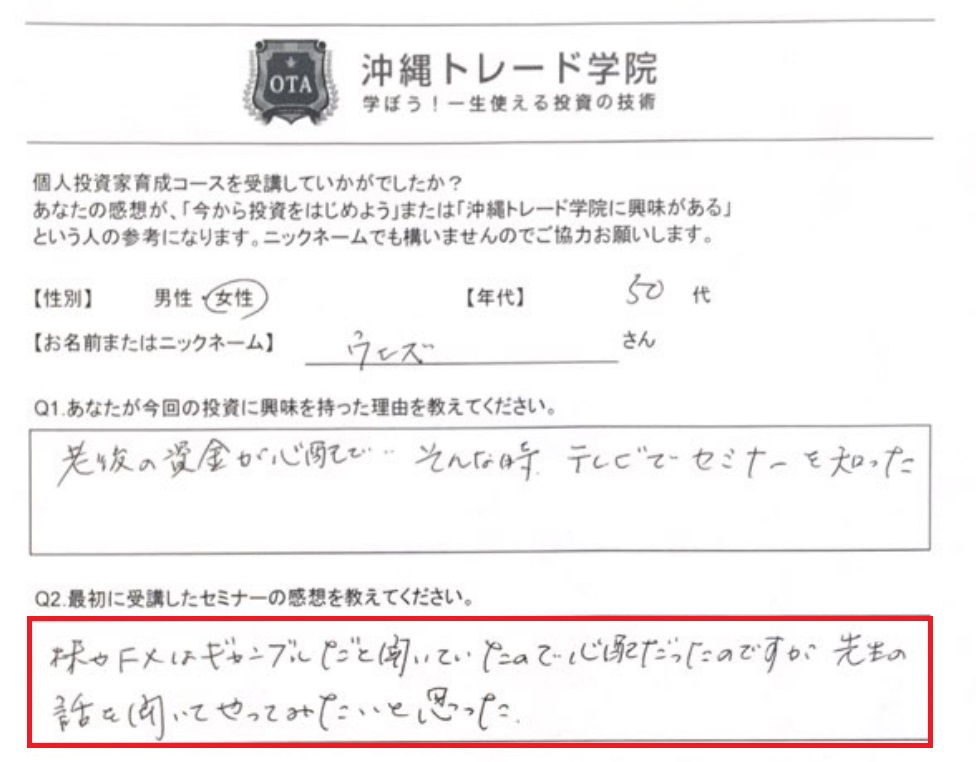 OTA
沖縄トレード学院
学ぼう！一生使える投資の技術
個人投資家育成コースを受講していかがでしたか？
あなたの感想が、「今から投資をはじめよう」または「沖縄トレード学院に興味がある」
という人の参考になります。ニックネームでも構いませんのでご協力お願いします。
【性別】 男性・女性 【年代】 50 代
【お名前またはニックネーム】 ウェズ さん
Q1.あなたが今回の投資に興味を持った理由を教えてください。
老後の資金が心配で… そんな時、テレビでセミナーを知った
Q2.最初に受講したセミナーの感想を教えてください。
株やFXはギャンブルだと聞いていたので心配だったのですが 先生の
話を聞いてやってみたいと思った。